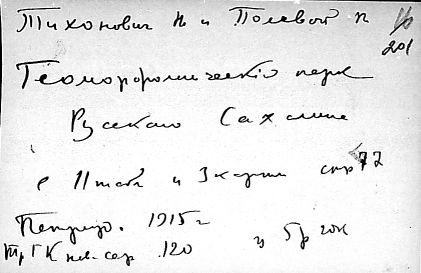 Тихонович Н и Полевой П
201
Геоморфологический очерк
Русского Сахалина
с 11 табл и 3 карт стр 77
Петрогр. 1915 г
Тр Г К нов. сер. 120 ц 5 р